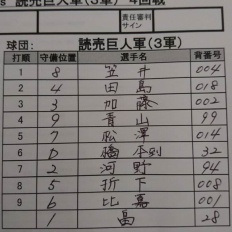 読売巨人軍(3軍) 4回戦
責任審判
サイン
球団: 読売巨人軍(3軍)
打順 守備位置 選手名 背番号
1 8 笠井 004
2 4 田島 018
3 3 加藤 002
4 9 青山 99
5 7 松澤 014
6 D 橋本到 32
7 2 河野 94
8 5 折下 008
9 6 比嘉 001
1 畠 28